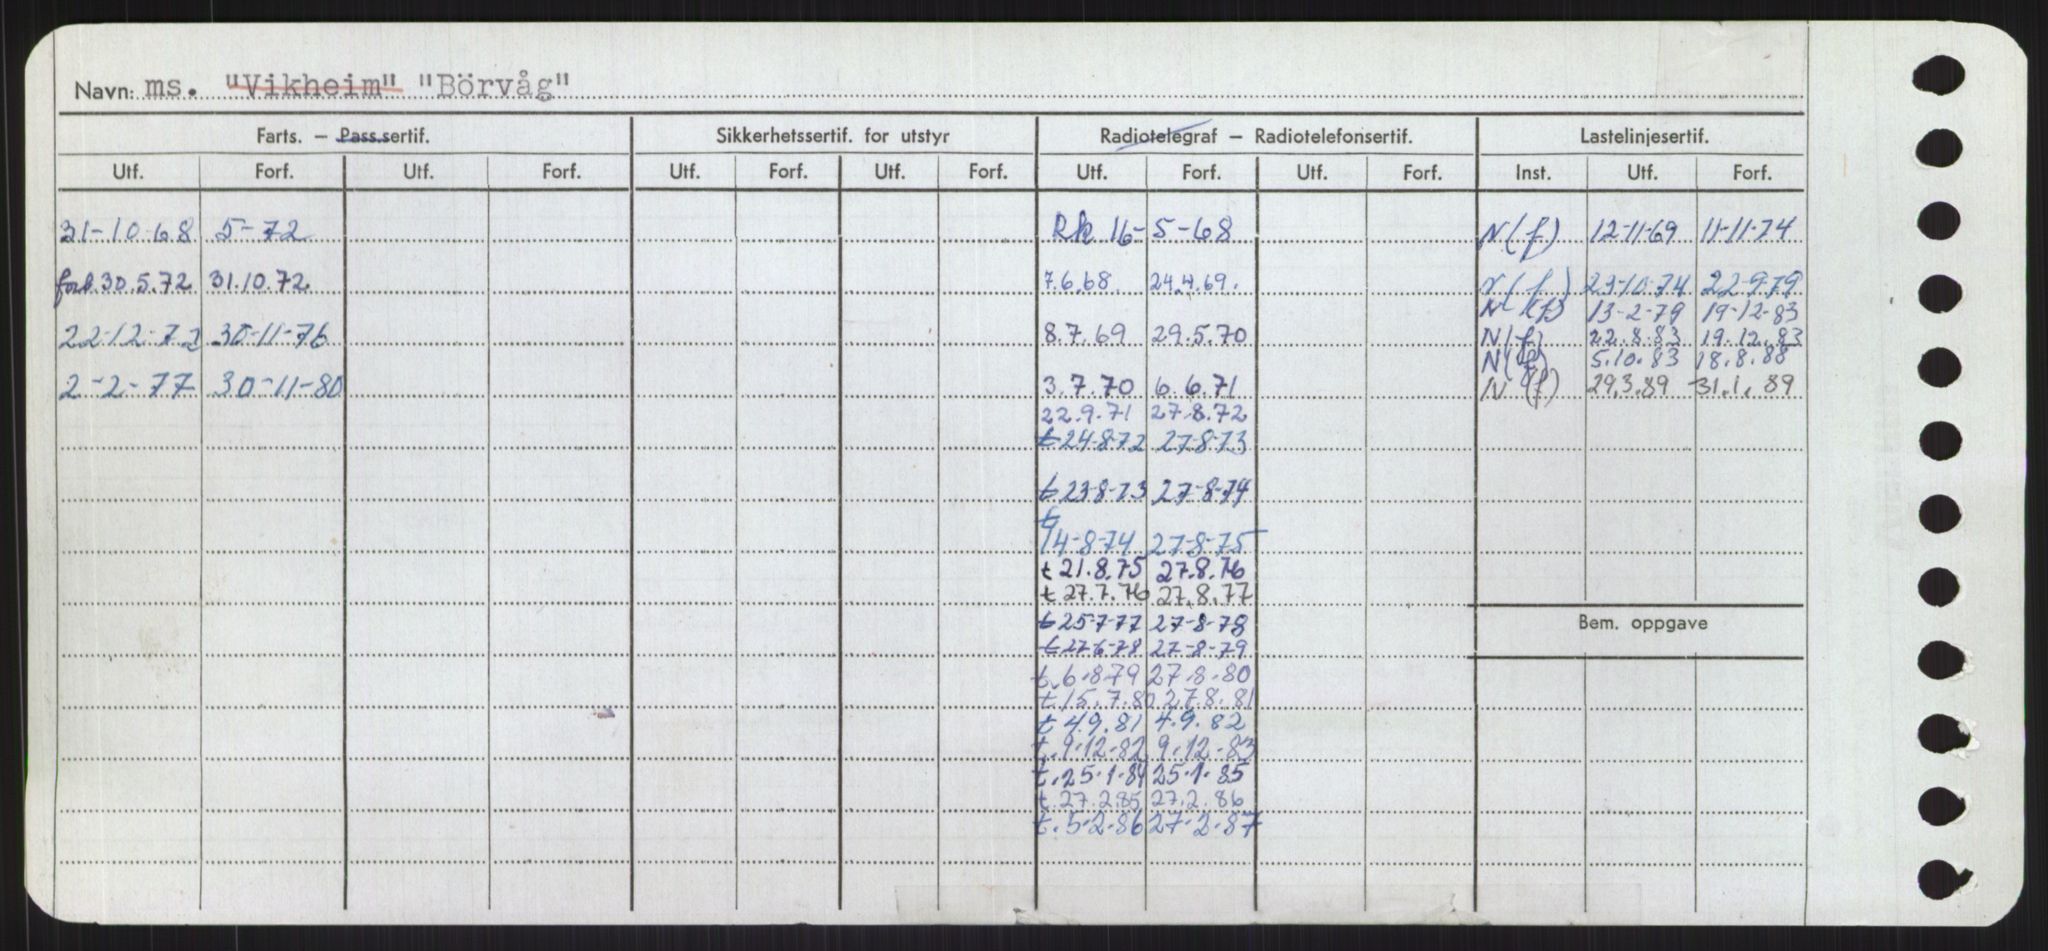 Navn: ms. "Vikheim" "Börvåg"
Farts. — Pass.sertif. Sikkerhetssertif. for utstyr Radiotelegraf — Radiotelefonsertif. Lastelinjesertif.
Utf. Forf. Utf. Forf. Utf. Forf. Utf. Forf. Utf. Forf. Utf. Forf. Inst. Utf. Forf.
31-10-68 5-72 Rk 16-5-68 N(f) 12-11-69 11-11-74
forl. 30.5.72 31.10.72 7.6.68 24.4.69. N(f) 23-10-74 22-9-79
N(f) 13-2-79 19-12-83
22-12-72 30-11-76 8.7.69 29.5.70 N(f) 22.8.83 19.12.83
N(f) 5.10.83 18.8.88
2-2-77 30-11-80 3.7.70 6.6.71 N(f) 29.3.89 31.1.89
22.9.71 27.8.72
t 24-8-72 27-8-73
t 23-8-73 27-8-74
t
14-8-74 27-8-75
t 21.8.75 27.8.76
t 27.7.76 27.8.77
t 25-7-77 27-8-78
Bem. oppgave
t 27-6-78 27-8-79
t.6.8.79 27.8.80
t.15.7.80 27.8.81
t 4.9.81 4.9.82
t.9.12.82 9.12.83
t.25.1.84 25.1.85
t.27.2.85 27.2.86
t.5.2.86 27.2.87